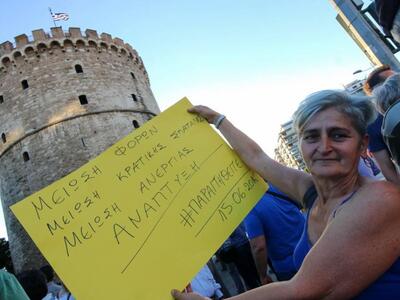 ΜΕΙΩΣΗ ΦΟΡΩΝ
ΜΕΙΩΣΗ ΚΡΑΤΙΚΗΣ ΣΠΑΤΑΛΗΣ
ΜΕΙΩΣΗ ΑΝΕΡΓΙΑΣ
ΑΝΑΠΤΥΞΗ
#ΠΑΡΑΙΤΗΘΕΙΤΕ
15.06.2016